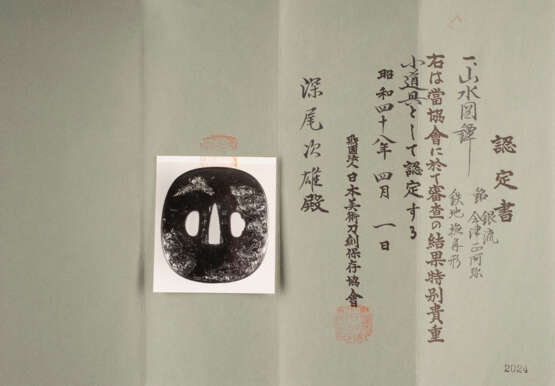 認定書
一、山水図鐔
銘 銀流
会津正阿弥
鉄地撫角形
右は當協會に於て審査の結果特別貴重
小道具として認定する
昭和四十八年四月一日
財團法人日本美術刀剣保存協會
深尾次雄殿
2024